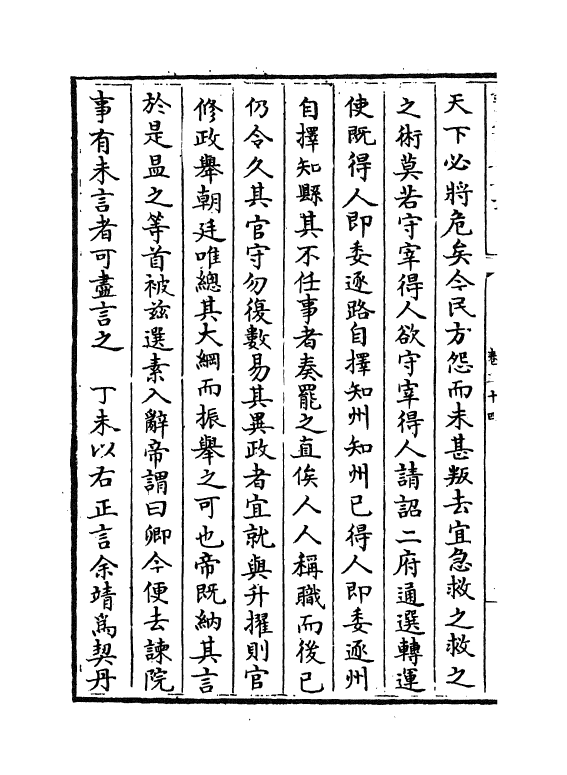 天下必將危矣今民方怨而未甚叛去宜急救之救之
之術莫若守宰得人欲守宰得人請詔二府通選轉運
使既得人即委逐路自擇知州知州已得人即委逐州
自擇知縣其不任事者奏罷之直俟人人稱職而後已
仍令久其官守勿復數易其異政者宜就與升擢則官
修政舉朝廷唯總其大綱而振舉之可也帝既納其言
於是昷之等首被兹選素入辭帝謂曰卿今便去諫院
事有未言者可盡言之　丁未以右正言余靖爲契丹
卷二十四